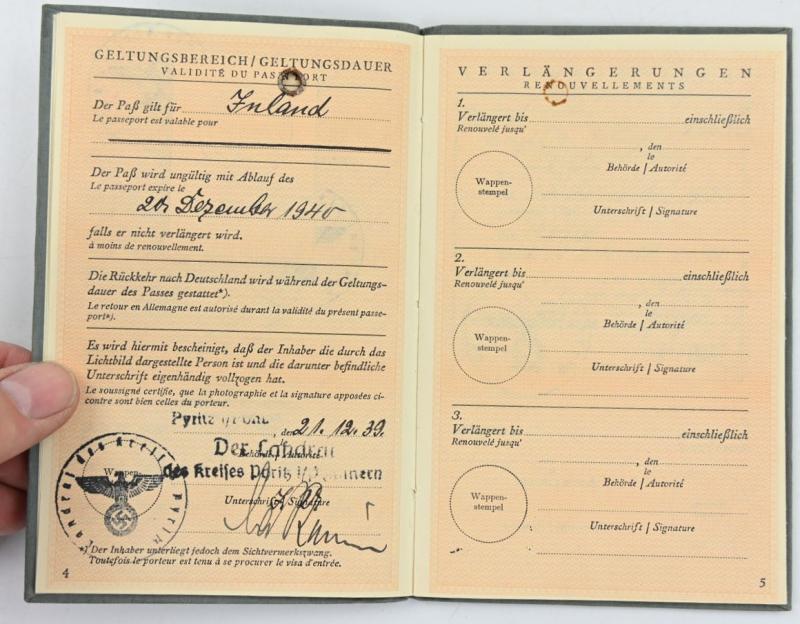 GELTUNGSBEREICH/GELTUNGSDAUER
VALIDITÉ DU PASSEPORT
Der Paß gilt für Inland
Le passeport est valable pour
Der Paß wird ungültig mit Ablauf des
Le passeport expire le
Dezember 1940
falls er nicht verlängert wird.
à moins de renouvellement.
Die Rückkehr nach Deutschland wird während der Geltungs-
dauer des Passes gestattet*).
Le retour en Allemagne est autorisé durant la validité du présent passe-
port*).
Es wird hiermit bescheinigt, daß der Inhaber die durch das
Lichtbild dargestellte Person ist und die darunter befindliche
Unterschrift eigenhändig vollzogen hat.
Le soussigné certifie, que la photographie et la signature apposées ci-
contre sont bien celles du porteur.
Pyritz
, den 21. 12. 39.
Der Landrat
Behörde / Autorité
des Kreises Pyritz i/Pommern
Wappen-
Unterschrift / Signature
*) Der Inhaber unterliegt jedoch dem Sichtvermerkszwang.
Toutefois le porteur est tenu à se procurer le visa d'entrée.
4
VERLÄNGERUNGEN
RENOUVELLEMENTS
1.
Verlängert bis einschließlich
Renouvelé jusqu'
, den
le
Behörde / Autorité
Wappen-
stempel
Unterschrift / Signature
2.
Verlängert bis einschließlich
Renouvelé jusqu'
, den
le
Behörde / Autorité
Wappen-
stempel
Unterschrift / Signature
3.
Verlängert bis einschließlich
Renouvelé jusqu'
, den
le
Behörde / Autorité
Wappen-
stempel
Unterschrift / Signature
5